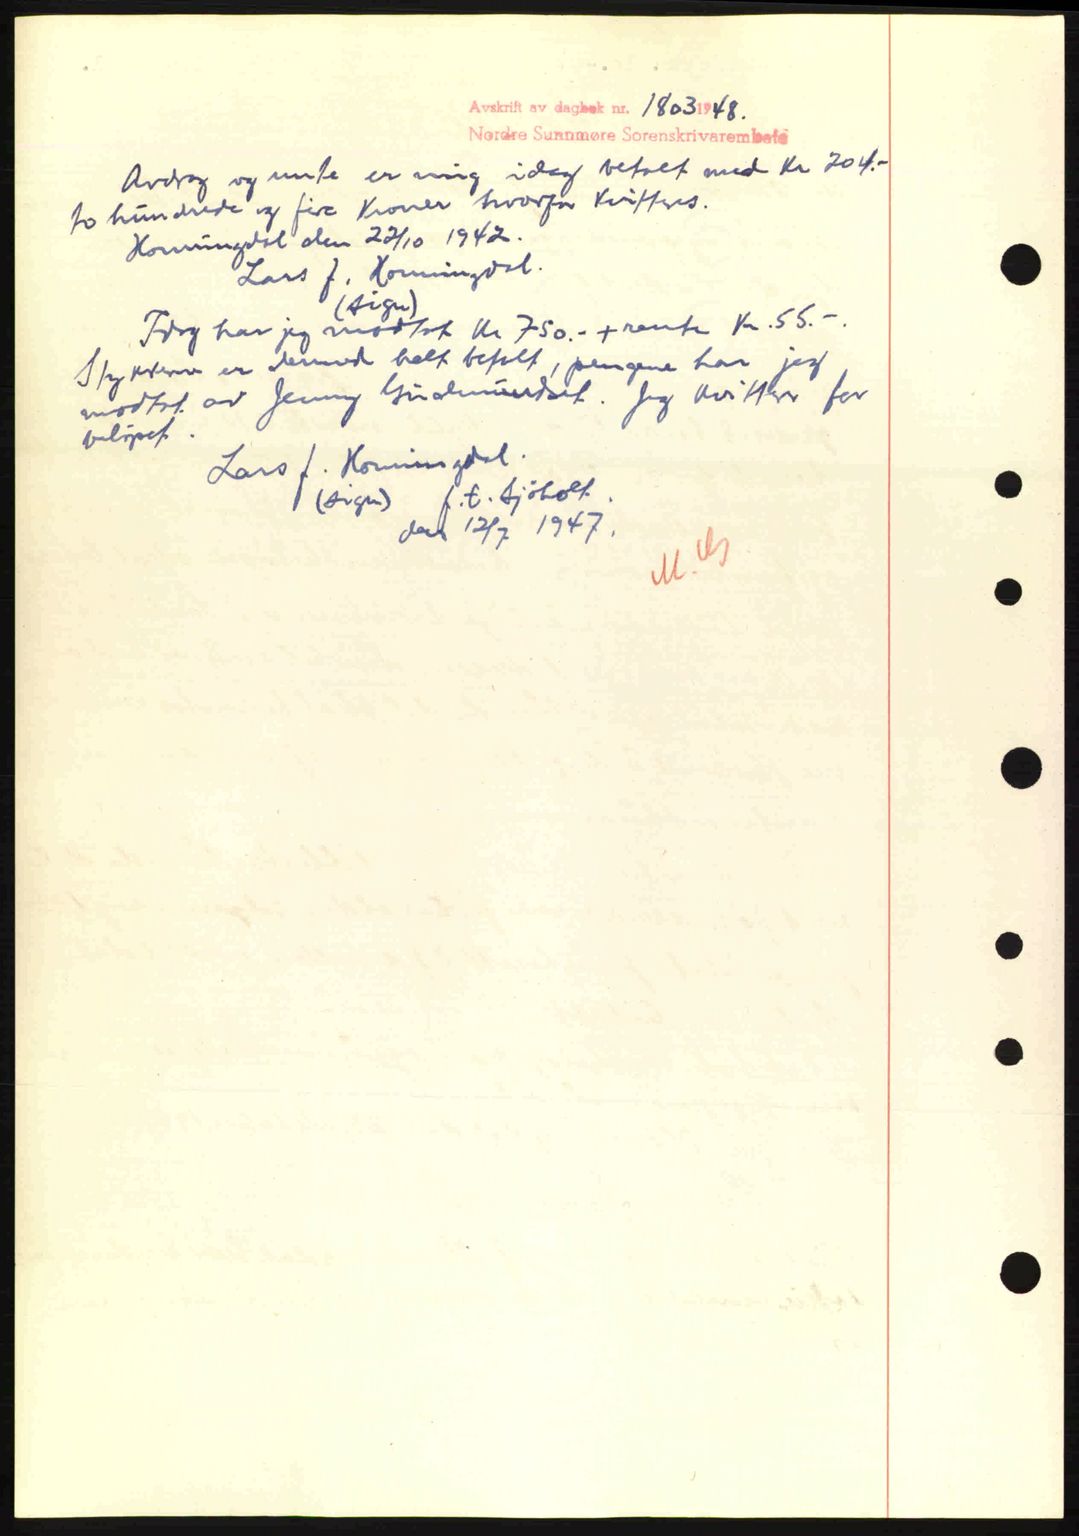 Avskrift av dagbok nr. 1803 1948.
Nordre Sunnmøre Sorenskrivarembete
Avdrag og rente er mig idag betalt med Kr 204.-
to hundrede og fire Kroner hvorfor Kvitteres.
Hornningdal den 22/10 1942.
Lars J. Hornningdal.
(sign)
Idag har jeg modtat Kr 750.- + rente Kr. 55.-.
Stykkerne er dermed helt betalt, pengene har jeg
modtat av Jenny . Jeg Kvitterer for
beløpet.
Lars J. Hornningdal.
(sign) f. t. Sjöholt.
den 12/7 1947.